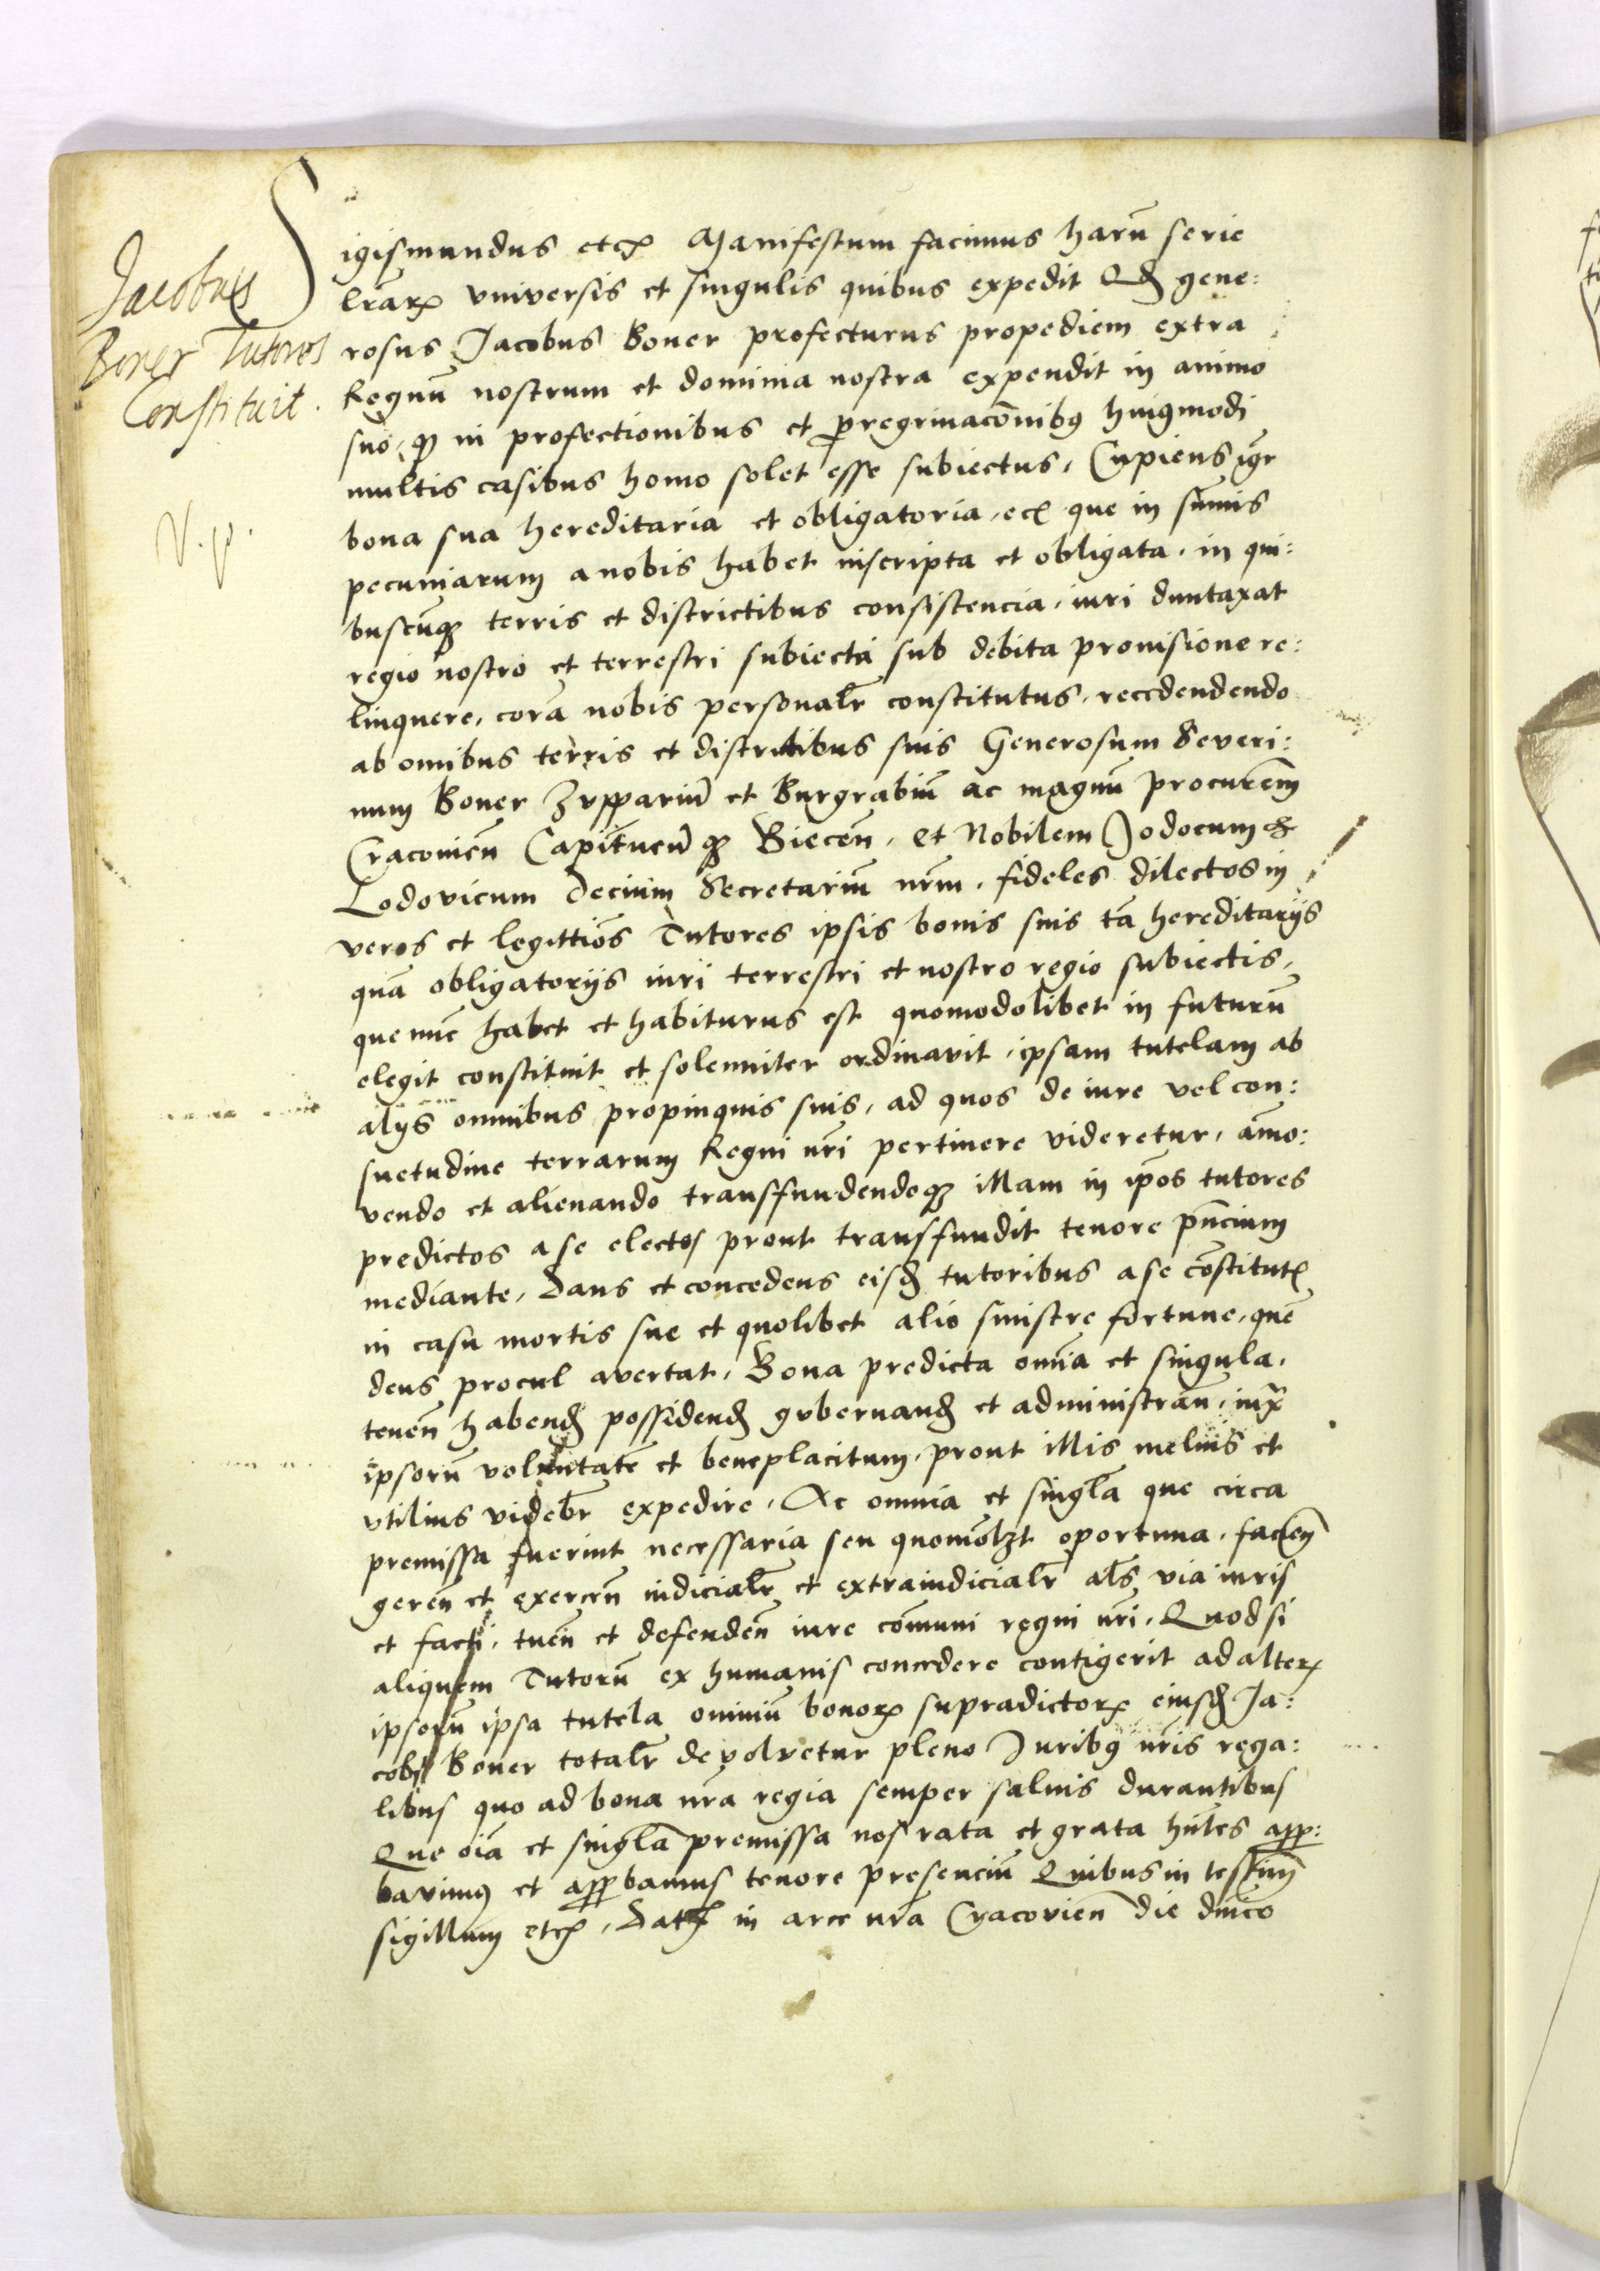 Jacobus
Boner Tutores
Constituit.
V. p.
Sigismundus etc Manifestum facimus harũ serie
lr̃arꝝ vniversis et singulis quibus expedit Qđ gene:
rosus Jacobus Boner profecturus propediem extra
Regnũ nostrum et dominia nostra expendit in animo
suo, ꝙ in profectionibus et peregrinacõnibꝰ huiꝰmodi
multis casibus homo solet esse subiectus, Cupiens igr̃
bona sua hereditaria et obligatoria, ecꝫ que in sum̃is
pecuniarum a nobis habet inscripta et obligata, in qui:
buscũqꝫ terris et districtibus consistencia, iuri duntaxat
regio nostro et terrestri subiecta sub debita prouisione re:
linquere, corã nobis personalr̃ constitutus, recedendendo
ab omibus terris et districtibus suis Generosum Severi:
num Boner Zuppariũ et Burgrabiũ ac magnũ procurẽm
Cracovieñ Capitũeũqꝫ Biecẽn, et Nobilem Jodocum
Lodovicum Decium Secretariũ nr̃m, fideles dilectos in
veros et legittiõs Tutores ipsis bonis suis tã hereditarijs
quã obligatorijs iuri terrestri et nostro regio subiectis,
que nũc habet et habiturus est quomodolibet in futurũ
elegit constituit et solenniter ordinavit, ipsam tutelam ab
alijs omnibus propinquis suis, ad quos de iure vel con:
suetudine terrarum Regni nr̃i pertinere videretur, am̃o:
vendo et alienando transfundendoqꝫ illam in ip̃os tutores
predictos a se electos prout transfundit tenore pñcium
mediante, Dans et concedens eisđ tutoribus a se cõstitutꝭ
in casu mortis sue et quolibet alio sinistre fortune, quẽ
deus procul avertat, Bona predicta omĩa et singula,
tenen̄ habenđ possidenđ gubernanđ et administran̄, iuxͣ
ipsorũ voluntatẽ et beneplacitum, prout illis melius et
vtilius videbr̃ expedire, Ac omnia et singl̃a que circa
premissa fuerint necessaria seu quomõlꝫt oportuna, facieñ
geren̄ et exercen̄ iudicialr̃ et extraiudicialr̃ al̃s via iuris
et facti, tuen̄ et defenden̄ iure cõmuni regni nr̃i, Quod si
aliquem Tutorũ ex humanis concedere contigerit ad alterꝝ
ipsorũ ipsa tutela omniũ bonorꝝ supradictorꝝ eiusđ Ja:
cobi Boner totalr̃ devolvetur pleno Juribꝰ nr̃is rega:
libus quo ad bona nr̃a regia semper saluis durantibus
Que oĩa et singl̃a premissa nos rata et grata hñtes appro:
bavimꝰ et approbamus tenore presenciũ Quibus in testim̃
sigillum etc, Datꝫ in arce nr̃a Cracovien̄ die dñico